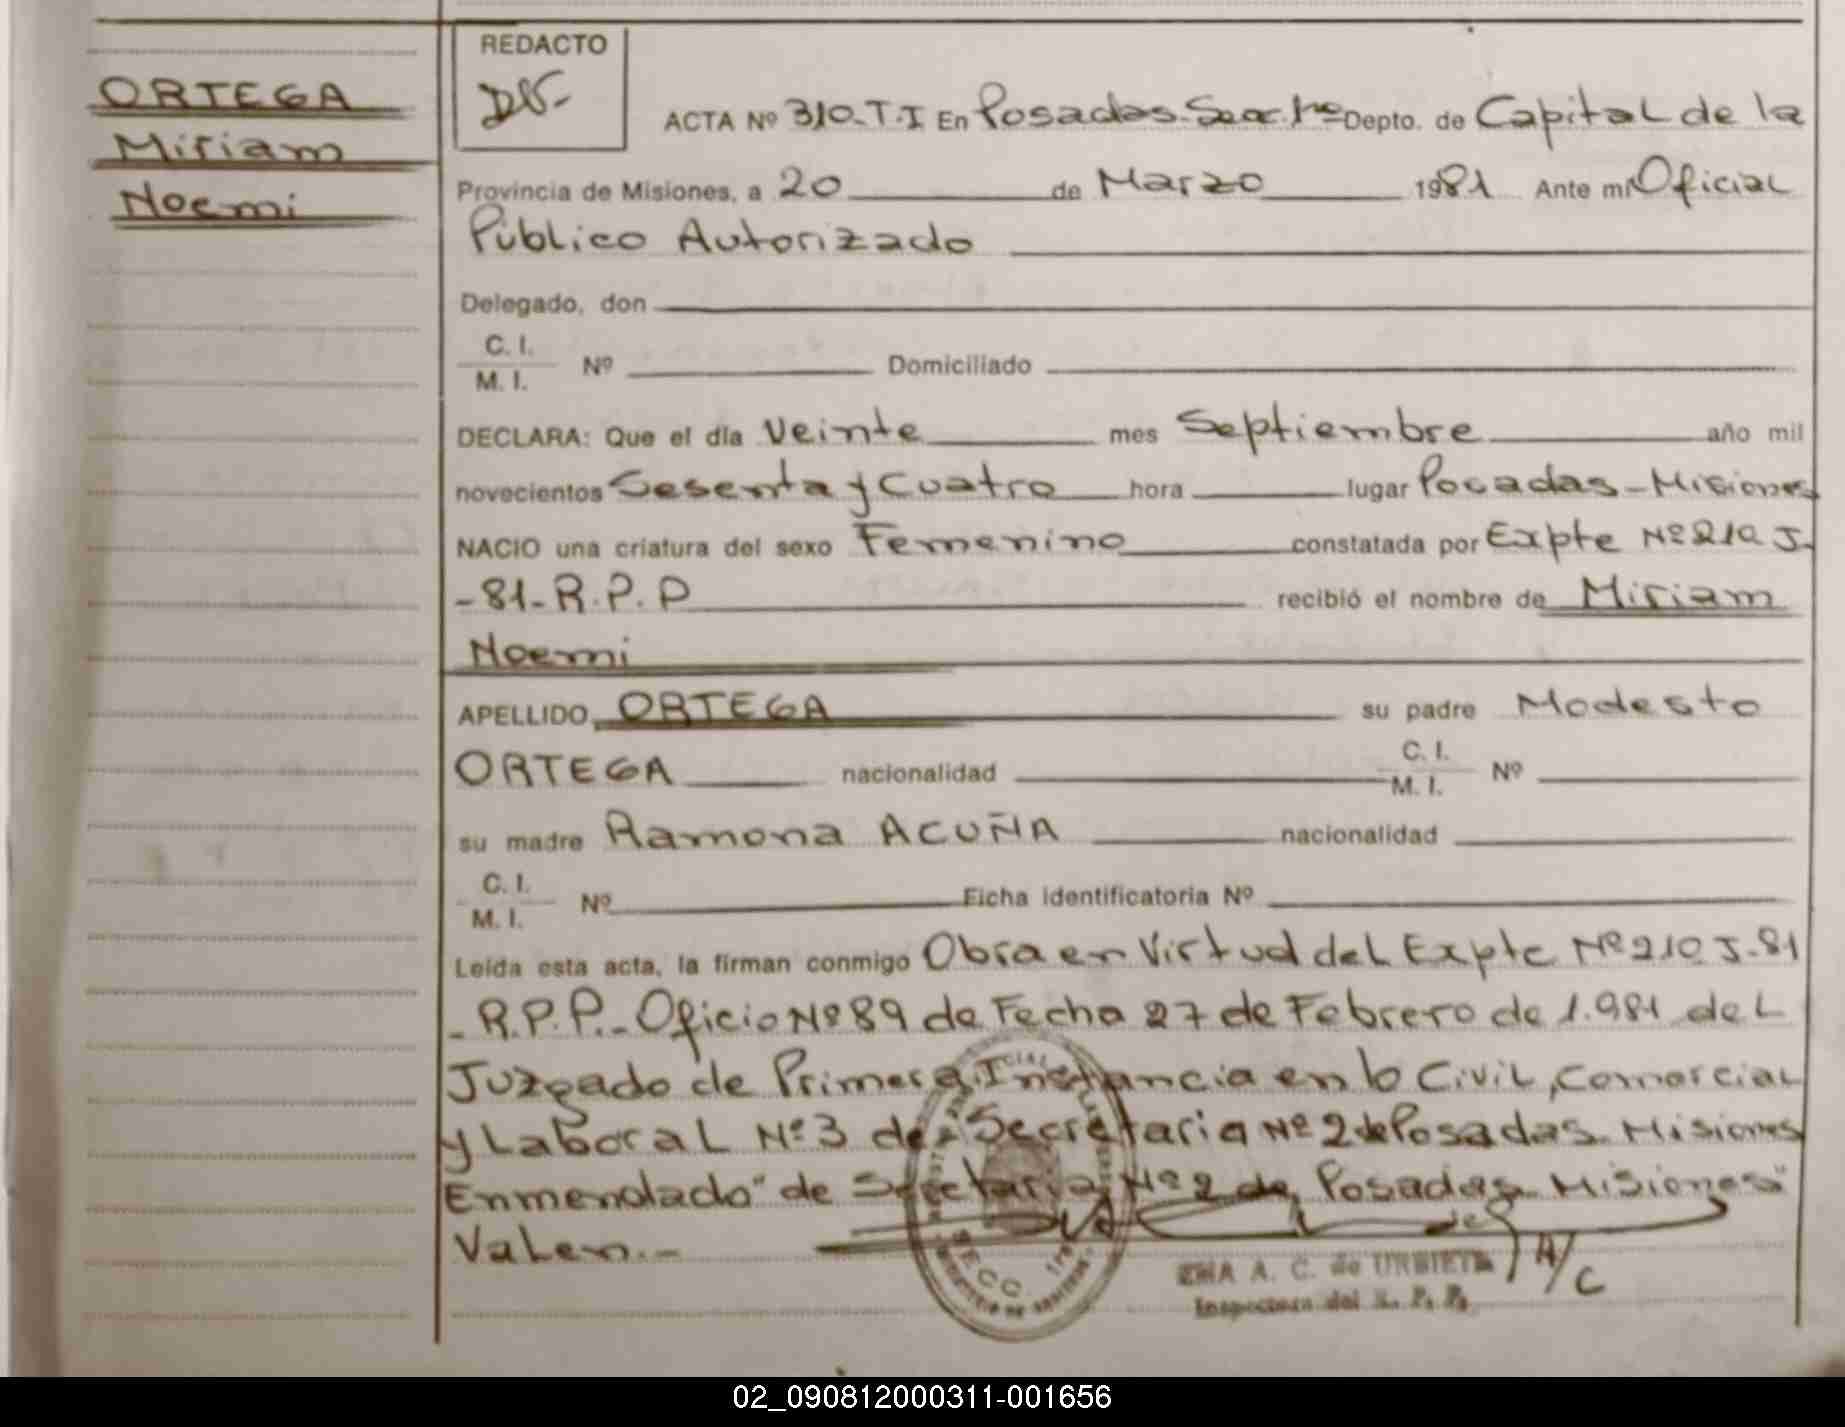 ORTEGA
Miriam
Noemi
REDACTO
ACTA Nº 310-T.I En Posadas Secc. 1ª Depto. de Capital de la
Provincia de Misiones, a 20 de Marzo 1981 Ante mí Oficial
Público Autorizado
Delegado, don
C. I.
M. I. Nº Domiciliado
DECLARA: Que el día Veinte mes Septiembre año mil
novecientos Sesenta y Cuatro hora lugar Posadas - Misiones
NACIO una criatura del sexo Femenino constatada por Expte Nº 210 J-
-81-R.P.P recibió el nombre de Miriam
Noemi
APELLIDO ORTEGA su padre Modesto
ORTEGA nacionalidad C. I.
M. I. Nº
su madre Ramona ACUÑA nacionalidad
C. I.
M. I. Nº Ficha identificatoria Nº
Leída esta acta, la firman conmigo Obra en Virtud del Expte Nº 210 J-81
-R.P.P.- Oficio Nº 89 de Fecha 27 de Febrero de 1.981 del
Juzgado de Primera Instancia en lo Civil, Comercial
y Laboral Nº 3 de Secretaria Nº 2 de Posadas Misiones
Enmendado" de Secretaria Nº 2 de Posadas Misiones"
Valen.-
SECC.
A. C. de URBIETA
Inspectora del R. P. P.
A/C
02_090812000311-001656